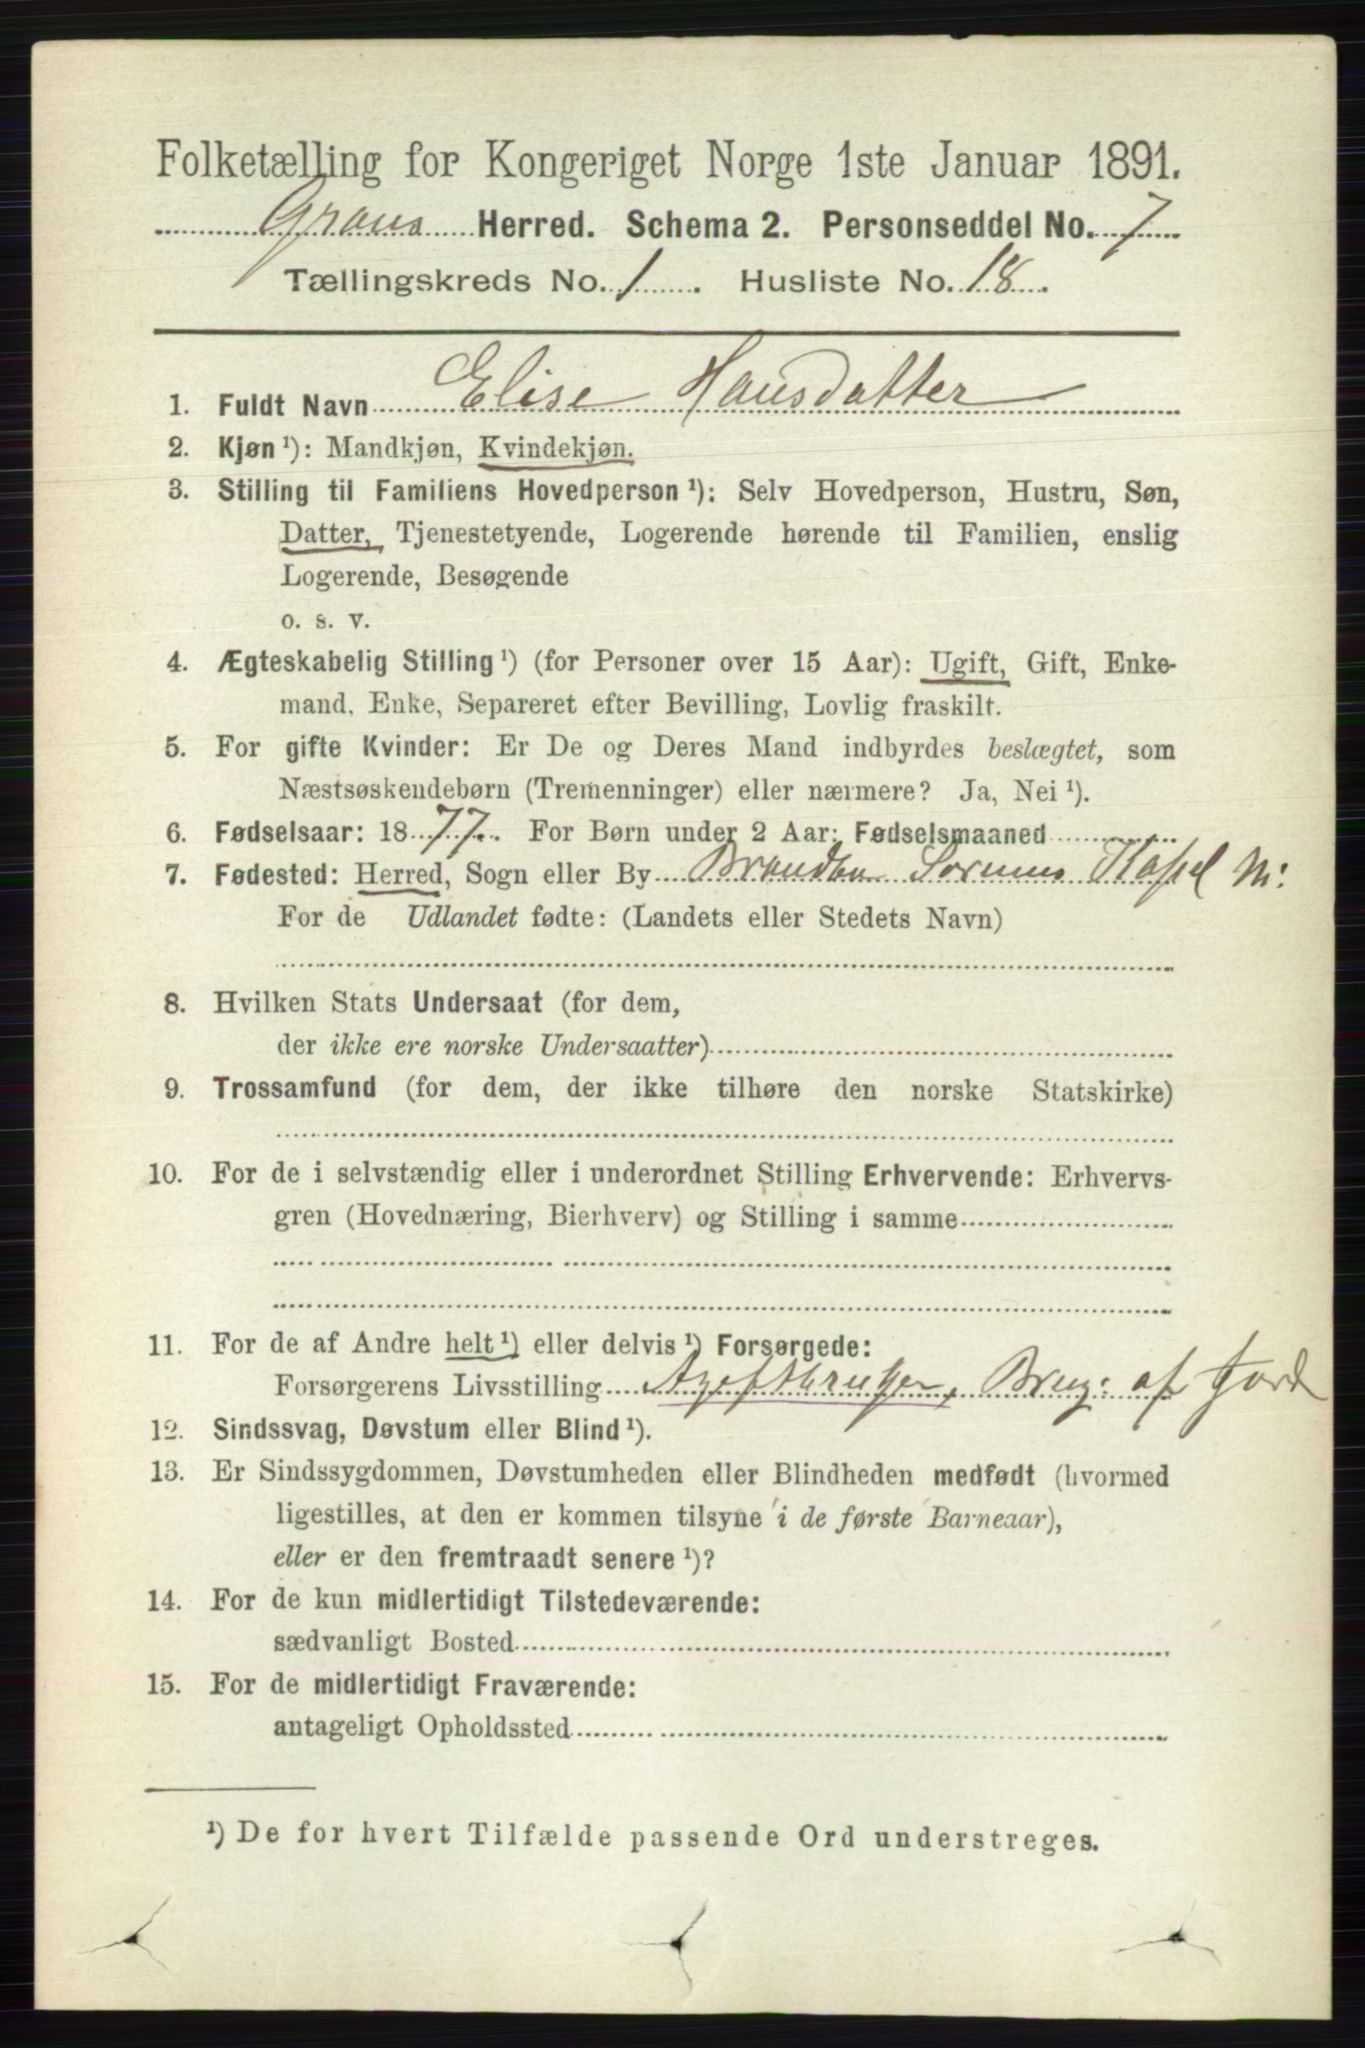 Folketælling for Kongeriget Norge 1ste Januar 1891.
Grans Herred. Schema 2. Personseddel No. 7
Tællingskreds No. 1. Husliste No. 18.
1. Fuldt Navn Elise Hansdatter
2. Kjøn ¹): Mandkjøn, Kvindekjøn.
3. Stilling til Familiens Hovedperson ¹): Selv Hovedperson, Hustru, Søn,
Datter, Tjenestetyende, Logerende hørende til Familien, enslig
Logerende, Besøgende
o. s. v.
4. Ægteskabelig Stilling ¹) (for Personer over 15 Aar): Ugift, Gift, Enke-
mand, Enke, Separeret efter Bevilling, Lovlig fraskilt.
5. For gifte Kvinder: Er De og Deres Mand indbyrdes beslægtet, som
Næstsøskendebørn (Tremenninger) eller nærmere? Ja, Nei ¹).
6. Fødselsaar: 1877. For Børn under 2 Aar: Fødselsmaaned
7. Fødested: Herred, Sogn eller By Brandbu
For de Udlandet fødte: (Landets eller Stedets Navn)
8. Hvilken Stats Undersaat (for dem,
der ikke ere norske Undersaatter)
9. Trossamfund (for dem, der ikke tilhøre den norske Statskirke)
10. For de i selvstændig eller i underordnet Stilling Erhvervende: Erhvervs-
gren (Hovednæring, Bierhverv) og Stilling i samme
11. For de af Andre helt ¹) eller delvis ¹) Forsørgede:
Forsørgerens Livsstilling Brug: af Jord
12. Sindssvag, Døvstum eller Blind ¹).
13. Er Sindssygdommen, Døvstumheden eller Blindheden medfødt (hvormed
ligestilles, at den er kommen tilsyne i de første Barneaar),
eller er den fremtraadt senere ¹)?
14. For de kun midlertidigt Tilstedeværende:
sædvanligt Bosted
15. For de midlertidigt Fraværende:
antageligt Opholdssted
¹) De for hvert Tilfælde passende Ord understreges.